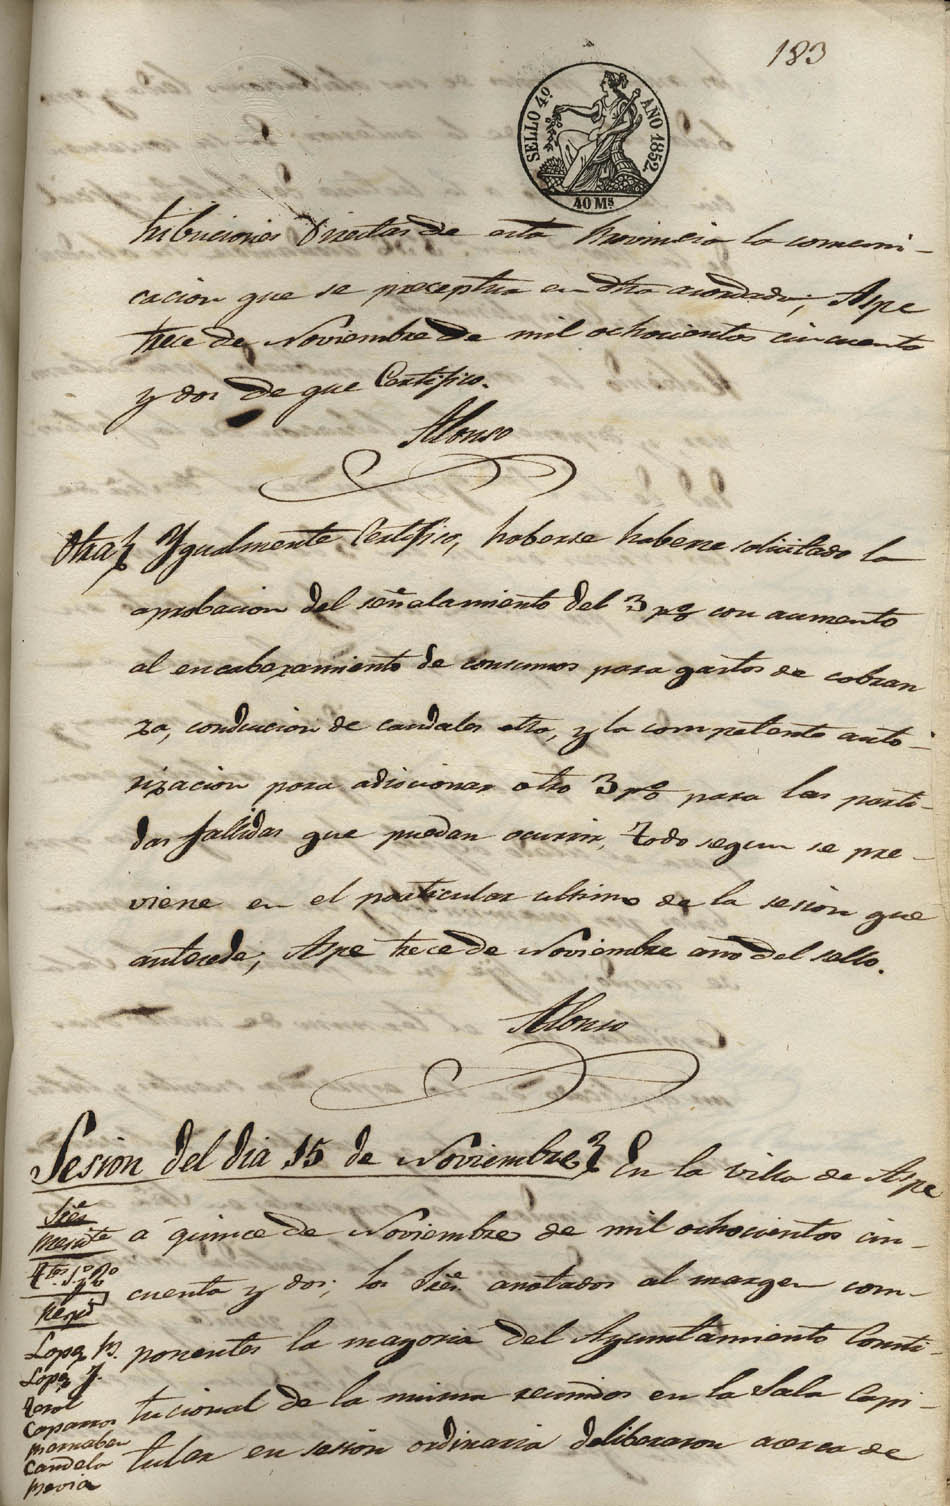 183
SELLO 4º AÑO 1852.
40 Ms
tribuciones Directas de esta Provincia la comuni-
cacion que se preceptua en dho acordado; Aspe
trece de Noviembre de mil ochocientos cincuenta
y dos de que Certifico.
Alonso
Otra} Ygualmente Certifico, haberse haberse solicitado la
aprobacion del señalamiento del 3 p% con aumento
al encabezamiento de consumos para gastos de cobran
za, conducion de caudales etra, y la competente auto-
rizacion para adicionar otro 3 p% para las parti-
das fallidas que puedan ocurrir, Todo segun se pre-
viene en el particular ultimo de la sesion que
antecede; Aspe trece de Noviembre año del sello.
Alonso
Sesion del dia 15 de Noviembre} En la villa de Aspe
á quince de Noviembre de mil ochocientos cin-
cuenta y dos; los Sres. anotados al margen com-
ponentes la mayoria del Ayuntamiento Consti-
tucional de la misma reunidos en la Sala Capi-
tular en sesion ordinaria deliberaron acerca de
Sres
Presite
Ttes 1º y 2º
Regs
Lopez M.
Lopez J.
Terol
Caparros
Marnabeu
Candela
Mevia